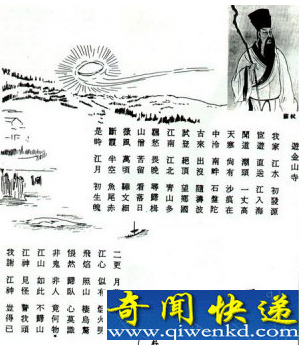 蘇軾
遊金山寺
我家江水初發源
宦遊直送江入海
聞道潮頭一丈高
天寒尚有沙痕在
中泠南畔石盤陀
古來出沒隨濤波
試登絕頂望鄉國
江南江北青山多
羈愁畏晚尋歸楫
山僧苦留看落日
微風萬頃靴文細
斷霞半空魚尾赤
是時江月初生魄
二更月
江心似有
飛焰照山棲烏驚
悵然歸臥心莫識
非鬼非人竟何物
江山如此不歸山
江神見怪警我頑
我謝江神豈得已
奇闻快递
www.qiwenkd.com